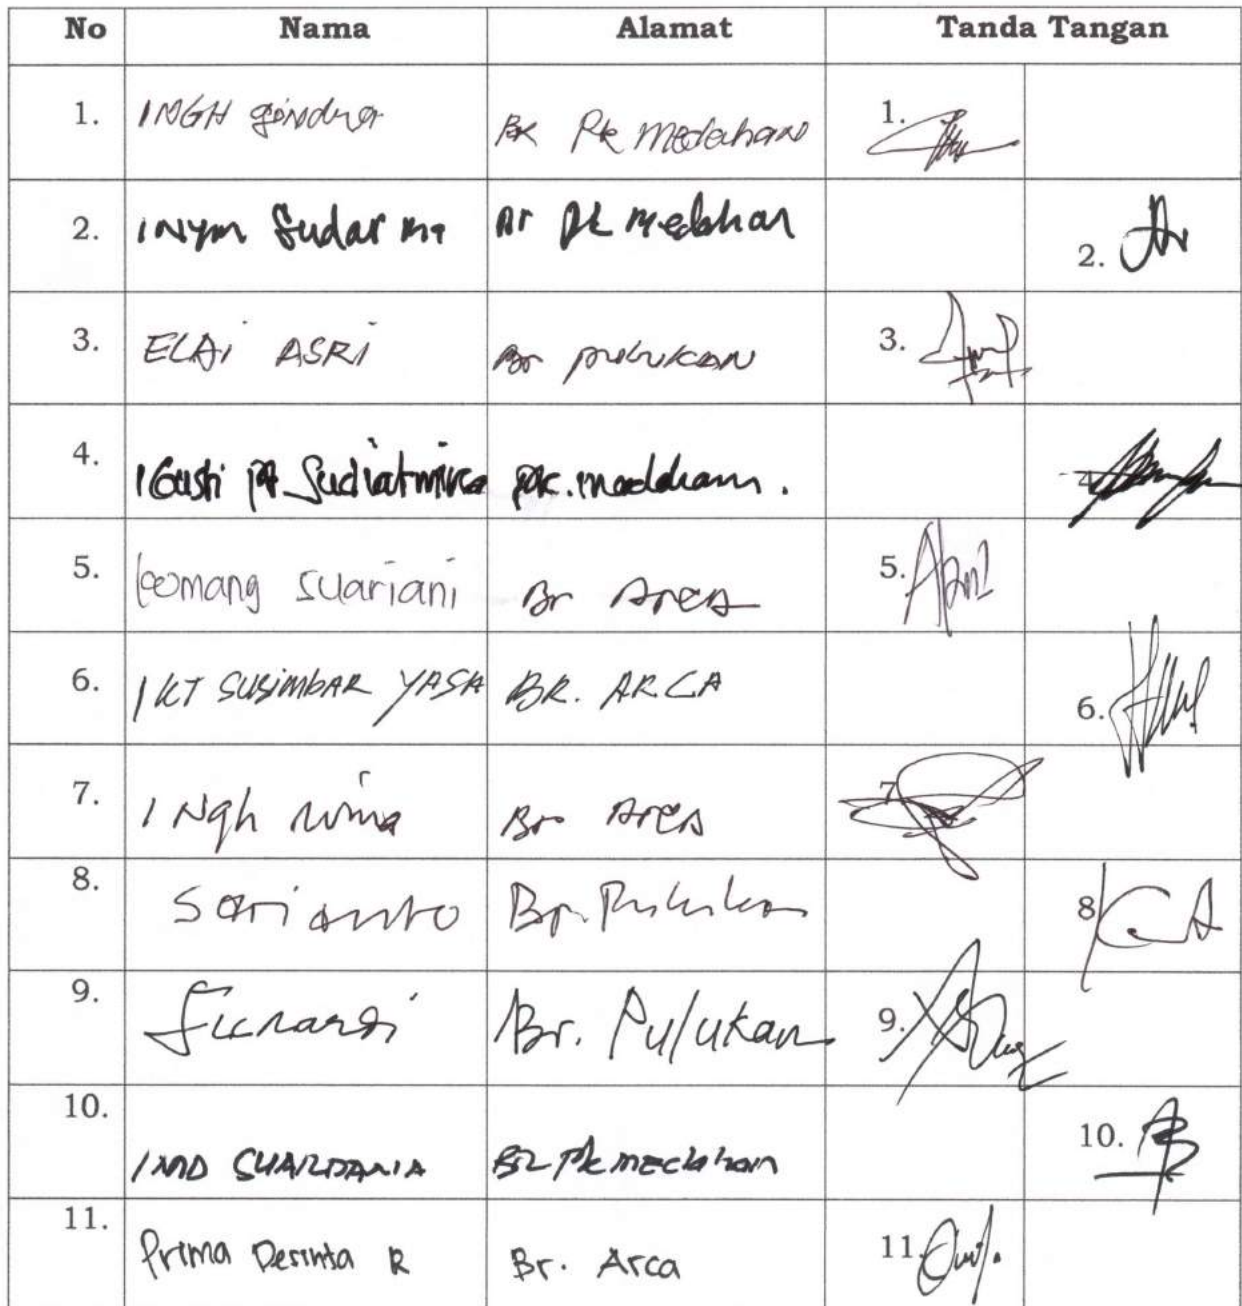 No Nama Alamat Tanda Tangan
1. I NGH Gindra Br Pk Medahan 1.
2. I Nym Sudarma Br Pk Medahan 2.
3. ELAi ASRi Br pulukan 3.
4. I Gusti pt Sudiatmika pk. medahan. 4.
5. komang suariani Br Arca 5.
6. I KT SUSiMBAR YASA BR. ARCA 6.
7. I Ngh wina Br Arca 7.
8. Sarianto Br. Pulukan 8.
9. Sunardi Br. Pulukan 9.
10. I MD SUARDANA Br Pk Medahan 10.
11. Prima Desinta R Br. Arca 11.